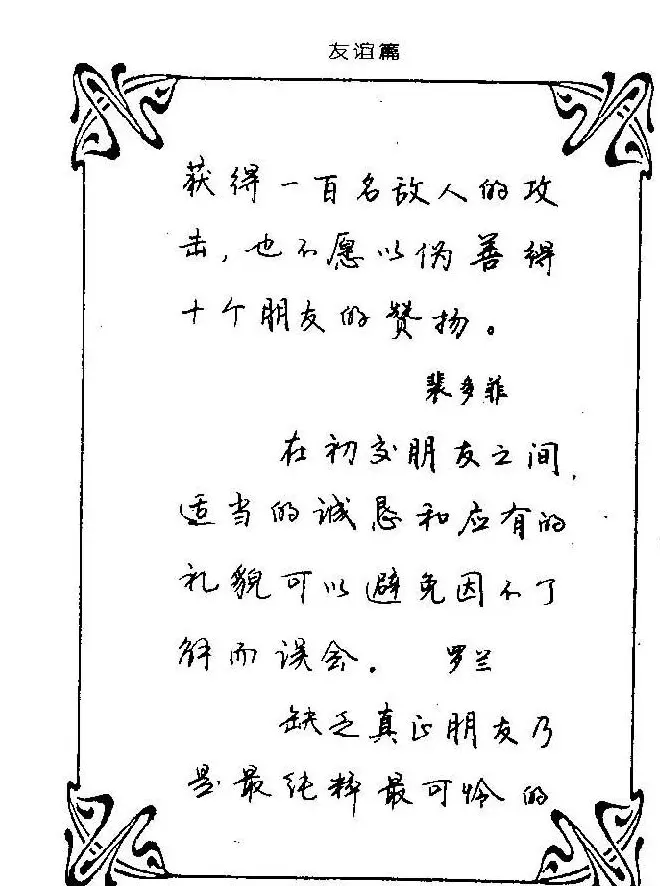 友谊篇
获得一百名敌人的攻
击，也不愿以伪善得
十个朋友的赞扬。
裴多菲
在初交朋友之间，
适当的诚恳和应有的
礼貌可以避免因不了
解而误会。 罗兰
缺乏真正朋友乃
是最纯粹最可怜的